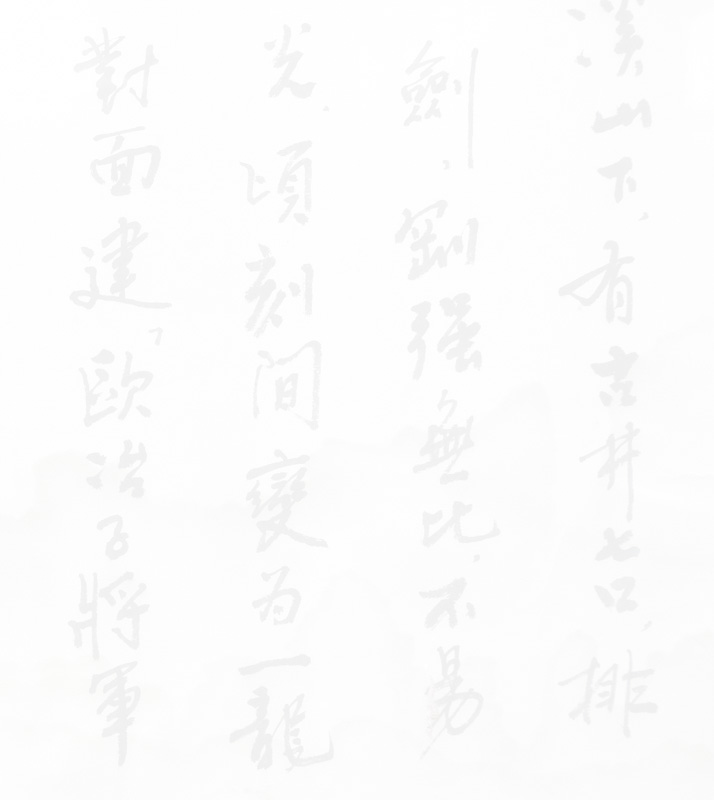 溪山下，有古井七口，排
劍，剛強無比．不易
光．頃刻間變為一龍
對面建「歐冶子將軍